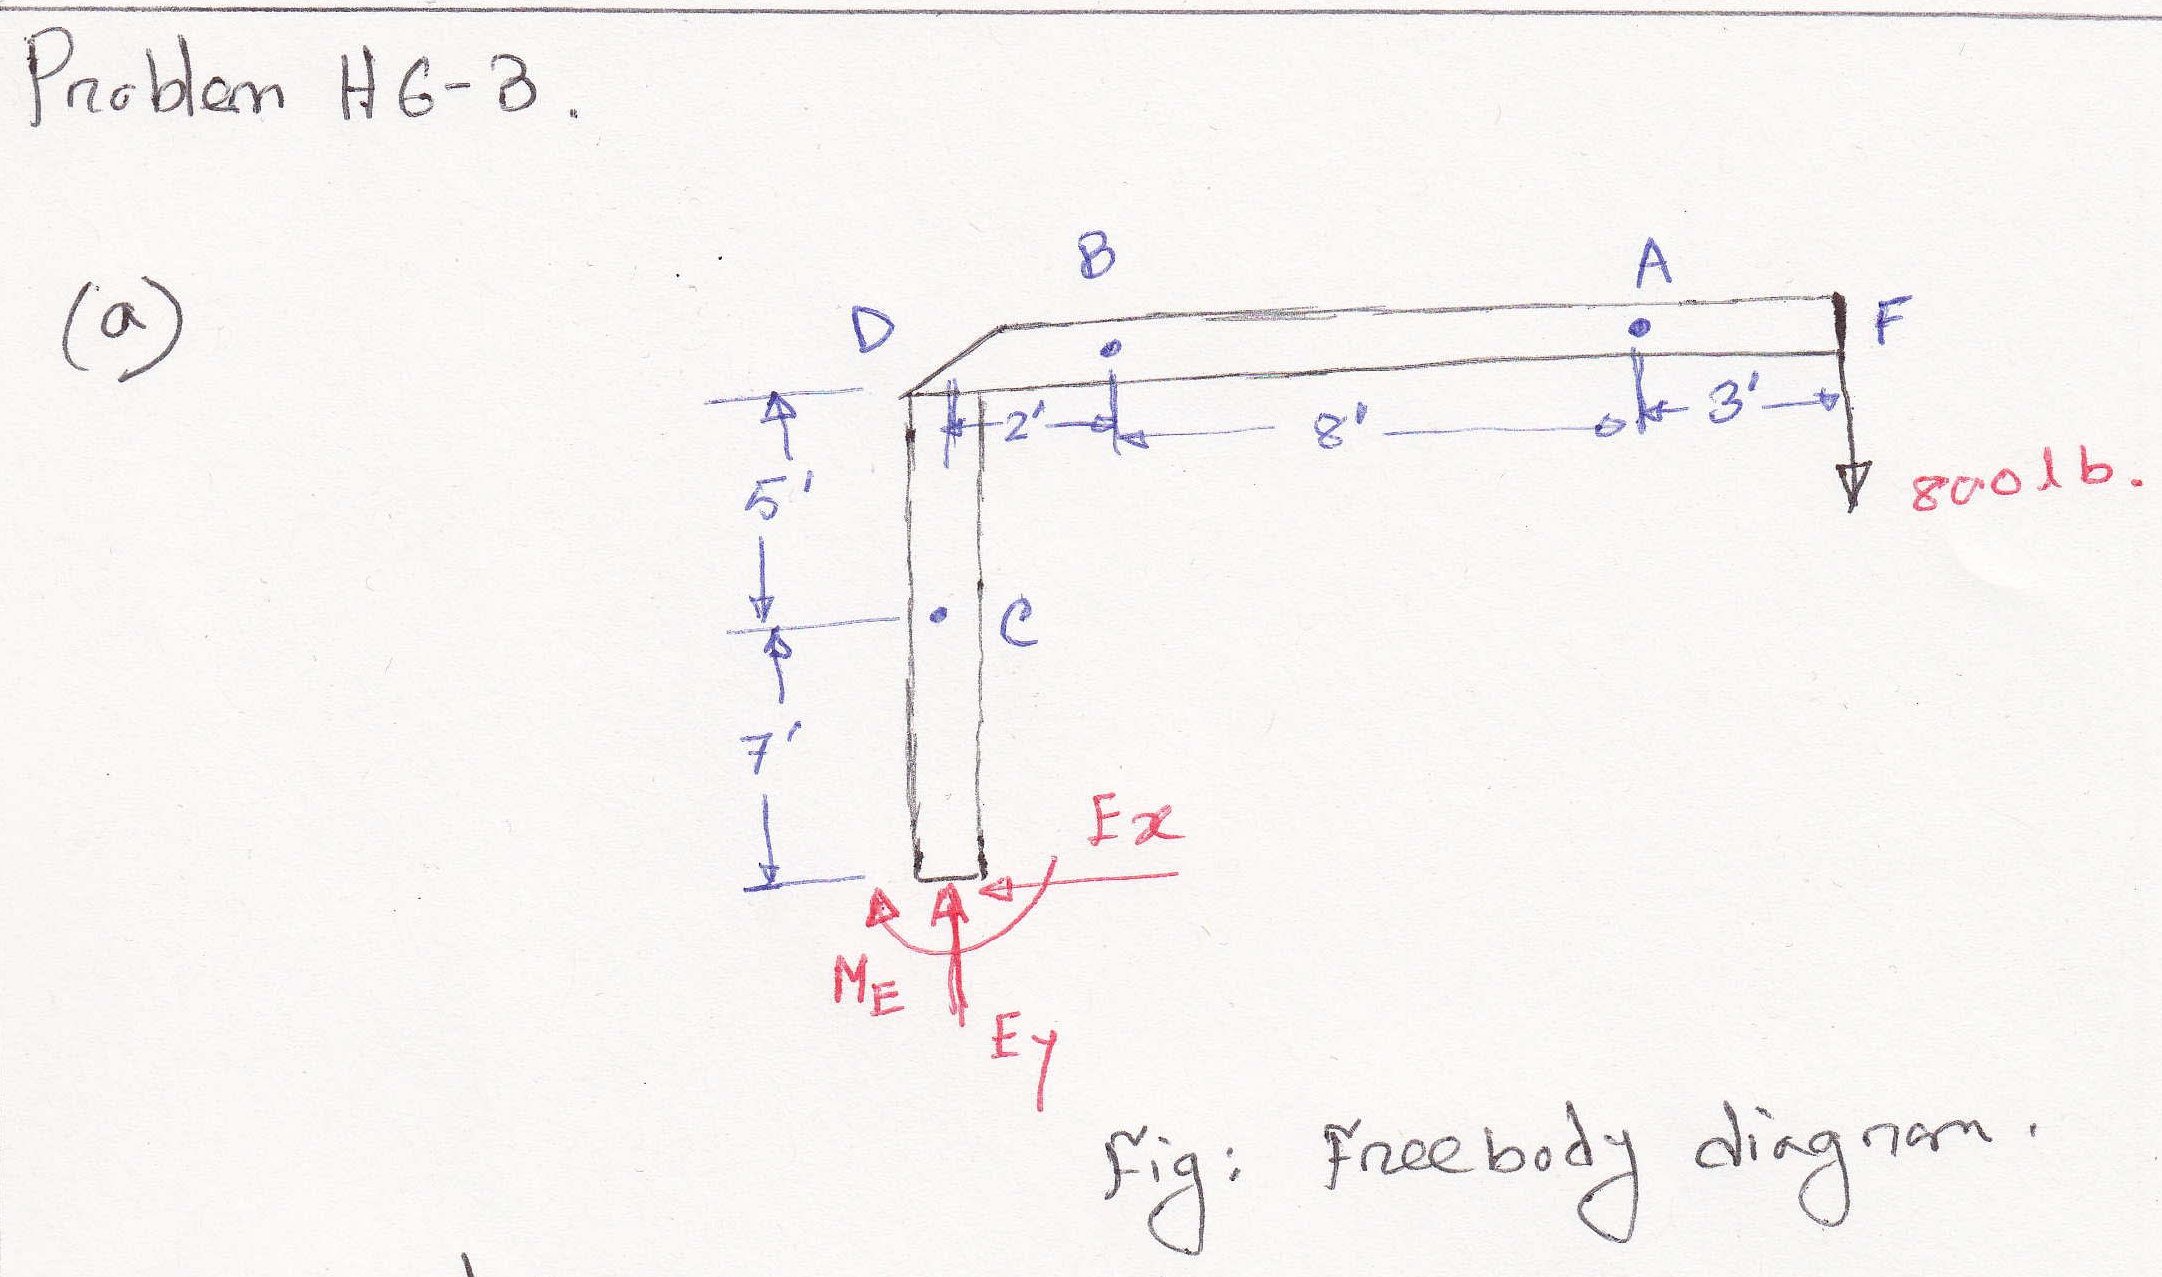 Problem H6-3.
(a)
B
A
D
F
2'
8'
3'
5'
800 lb.
C
7'
Ex
ME
Ey
Fig: Freebody diagram.